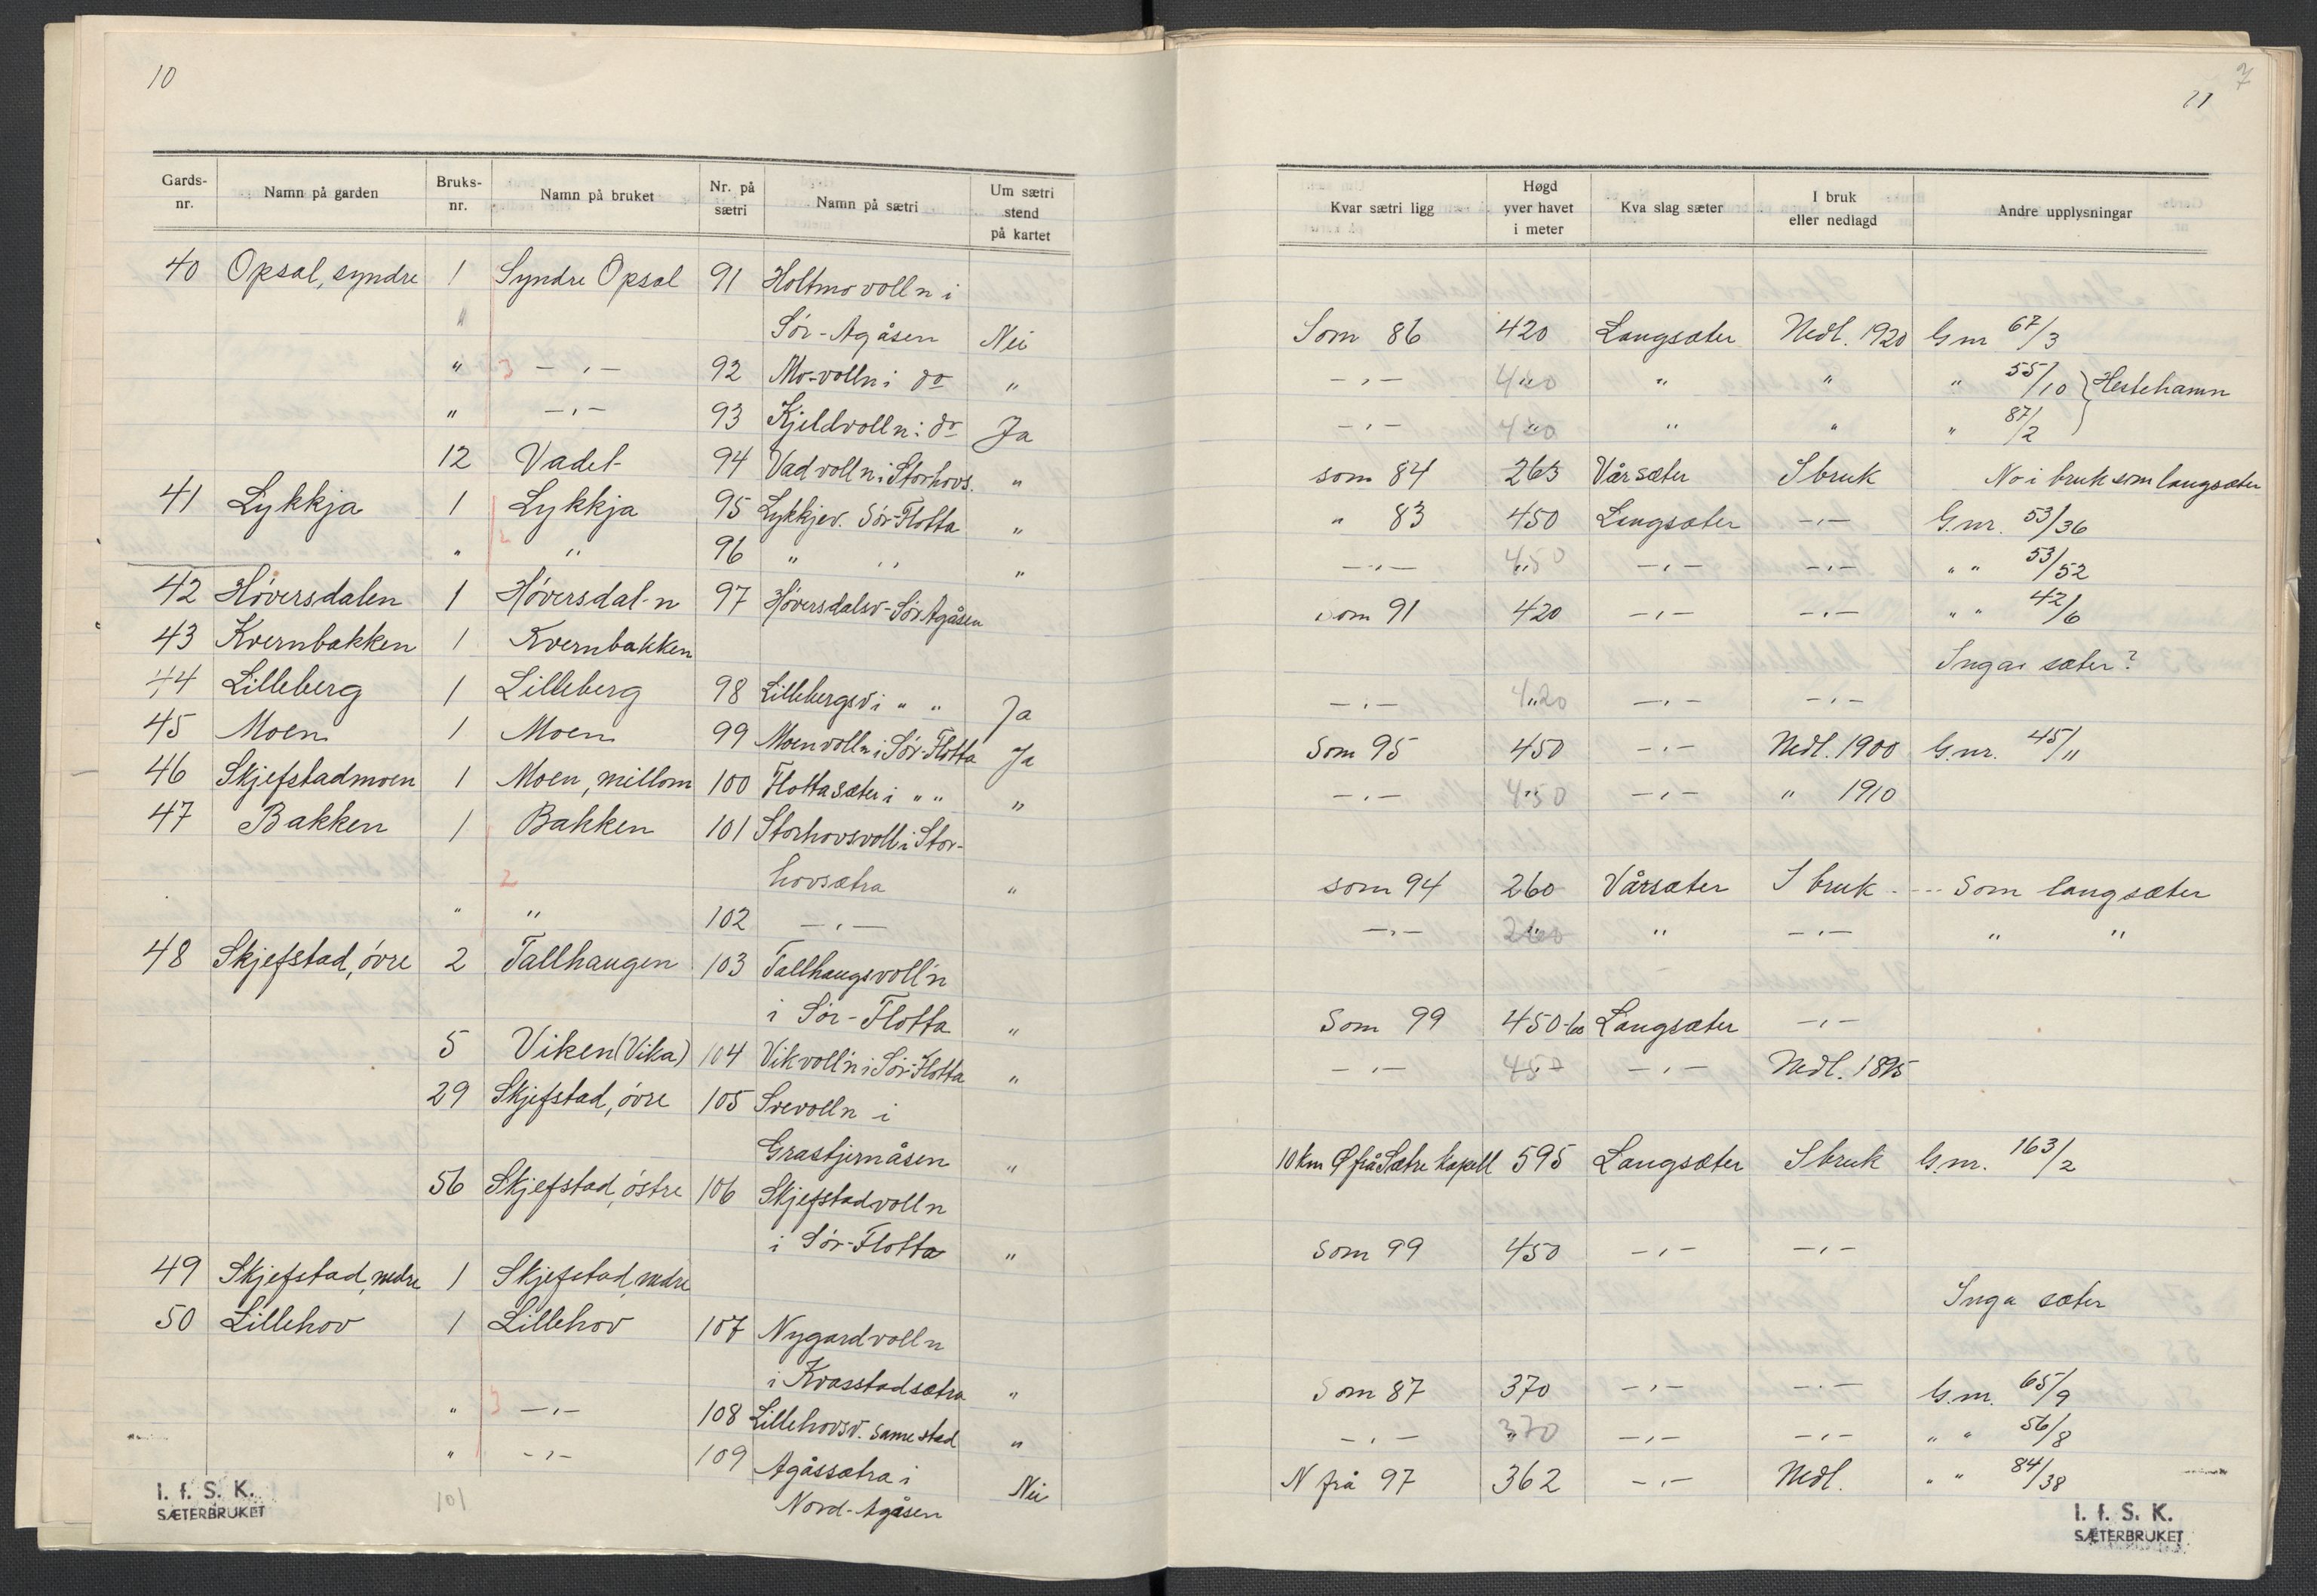 10
Gards-nr. Namn på garden Bruks-nr. Namn på bruket Nr. på sætri Namn på sætri Um sætri stend på kartet
40 Opsal, syndre 1 Syndre Opsal 91 Holtmovolln i
" Sør-Agåsen Nei
" 3 — " — 92 Mo-volln i do "
" — " — 93 Kjeldvolln i do Ja
12 Vadet 94 Vadvolln i Storhovs. "
41 Lykkja 1 Lykkja 95 Lykkjev. Sør-Flotta "
" 2 " 96 " " "
42 Høversdalen 1 Høversdal-n 97 Høversdalsv-Sør Agåsen
43 Kvernbakken 1 Kvernbakken
44 Lilleberg 1 Lilleberg 98 Lillebergsv i " " Ja
45 Moen 1 Moen 99 Moenvolln i Sør-Flotta Ja
46 Skjefstadmoen 1 Moen, millom 100 Flottasæter i " " "
47 Bakken 1 Bakken 101 Storhovsvoll i Stor-
2 hovsætra "
" " 102 — " —
48 Skjefstad, øvre 2 Tallhaugen 103 Tallhaugsvolln
i Sør-Flotta "
5 Viken (Vika) 104 Vikvolln i Sør-Flotta "
29 Skjefstad, øvre 105 Svevolln i
Grastjernåsen "
56 Skjefstad, østre 106 Skjefstadvolln
i Sør-Flotta "
49 Skjefstad, nedre 1 Skjefstad, nedre
50 Lillehov 1 Lillehov 107 Nygardvolln
i Kvasstadsætra "
" 3 — " — 108 Lillehovsv. same stad "
" — " — 109 Agåssætra i Nei
Nord-Agåsen
101
I. f. S. K.
SÆTERBRUKET
7
11
Kvar sætri ligg Høgd yver havet i meter Kva slag sæter I bruk eller nedlagd Andre upplysningar
Som 86 420 Langsæter Nedl. 1920 Gnr 67/3
— " — 420 " " " 55/10 } Hestehamn
— " — 420 " " " 87/2
som 84 265 Vårsæter I bruk No i bruk som langsæter
" 83 450 Langsæter — " — Gnr. 53/36
— " — 450 — " — — " — " " 53/52
Som 91 420 — " — — " — " " 42/6
Ingar sæter?
— " — 420 — " — — " —
Som 95 450 — " — Nedl. 1900 Gnr. 45/11
— " — 450 — " — " 1910
som 94 260 Vårsæter I bruk - - - Som langsæter
— " — 260 " — " — " "
Som 99 450-60 Langsæter — " —
— " — 450 — " — Nedl. 1895
10 km Ø frå Sætre kapell 595 Langsæter I bruk G.nr. 163/2
Som 99 450 — " — — " —
Inga sæter
Som 87 370 — " — — " — G.nr. 65/9
— " — 370 — " — — " — " " 56/8
N frå 97 362 — " — Nedl. " " 84/38
I. f. S. K.
SÆTERBRUKET